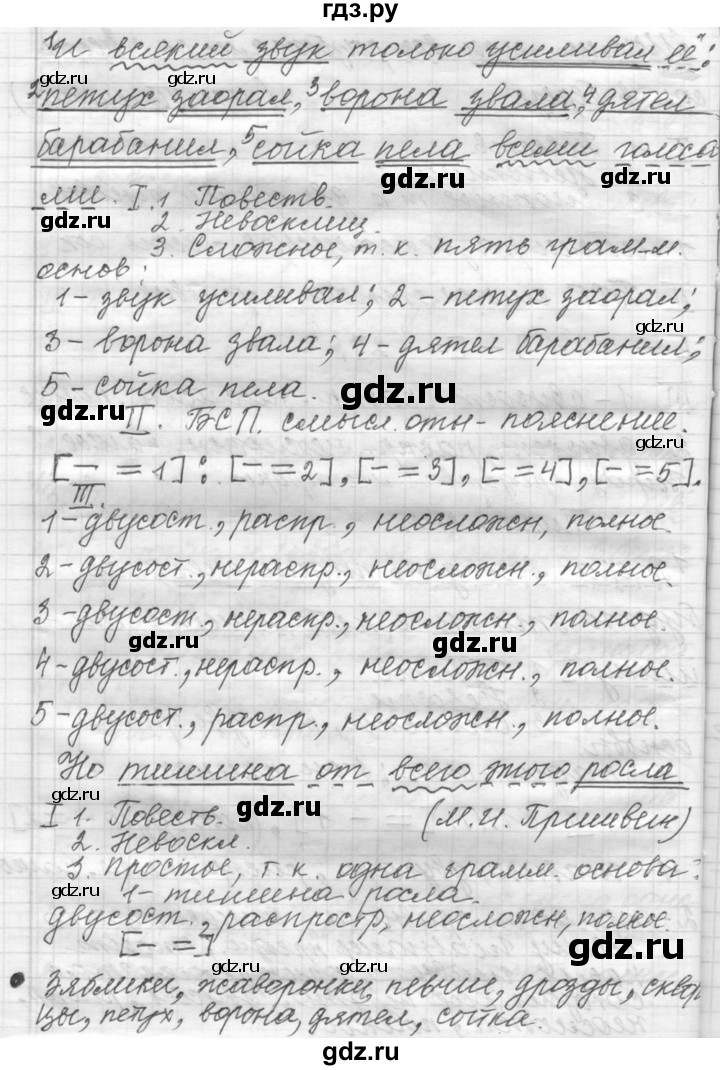 гдз.ру
1И всякий звук только усиливал её:
2петух заорал, 3ворона звала, 4дятел
барабанил, 5сойка пела всеми голоса
ми. I. 1 Повеств.
2. Невосклиц.
3. Сложное, т. к. пять грам-м.
основ:
1 – звук усиливал; 2 – петух заорал;
3 – ворона звала; 4 – дятел барабанил;
5 – сойка пела.
II. БСП. смысл. отн – пояснение.
[— = 1]: [— = 2], [— = 3], [— = 4], [— = 5].
III.
1 – двусост., распр., неосложн, полное.
2 – двусост., нераспр., неосложн., полное.
3 – двусост., нераспр., неосложн., полное.
4 – двусост., нераспр., неосложн., полное.
5 – двусост., распр., неосложн., полное.
Но тишина от всего этого росла
I 1. Повеств. (М.И. Пришвин)
2. Невоскл.
3. Простое, т. к. одна грамм. основа:
1 – тишина росла.
двусост., распростр, неосложн, полное.
[— =]
Зяблики, жаворонки, певчие, дрозды, сквор
цы, петух, ворона, дятел, сойка.
gdz.ru